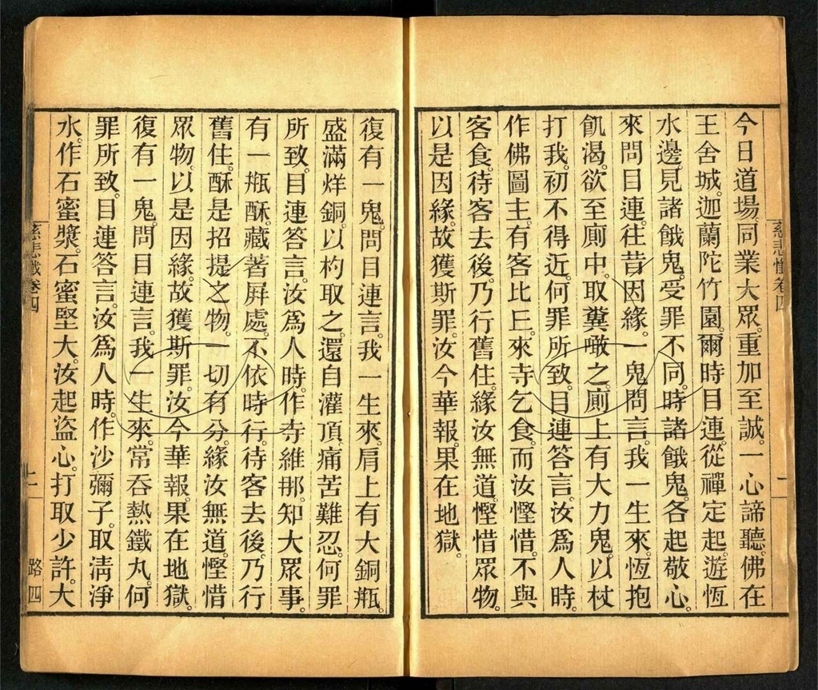 今日道場。同業大眾。重加至誠。一心諦聽。佛在
王舍城。迦蘭陀竹園。爾時目連。從禪定起。遊恆
水邊。見諸餓鬼。受罪不同。時諸餓鬼。各起敬心。
來問目連。往昔因緣。一鬼問言。我一生來。恆抱
飢渴。欲至厠中。取糞噉之。厠上有大力鬼。以杖
打我。初不得近。何罪所致。目連答言。汝爲人時。
作佛圖主。有客比丘。來寺乞食。而汝慳惜。不與
客食。待客去後。乃行舊住。緣汝無道。慳惜眾物。
以是因緣。故獲斯罪。汝今華報。果在地獄。
復有一鬼。問目連言。我一生來。肩上有大銅瓶。
盛滿烊銅。以杓取之。還自灌頂。痛苦難忍。何罪
所致。目連答言。汝爲人時。作寺維那。知大眾事。
有一瓶酥。藏著屛處。不依時行。待客去後。乃行
舊住。酥是招提之物。一切有分。緣汝無道。慳惜
眾物。以是因緣。故獲斯罪。汝今華報。果在地獄。
復有一鬼。問目連言。我一生來。常吞熱鐵丸。何
罪所致。目連答言。汝爲人時。作沙彌子。取清淨
水。作石蜜漿。石蜜堅大。汝起盜心。打取少許。大